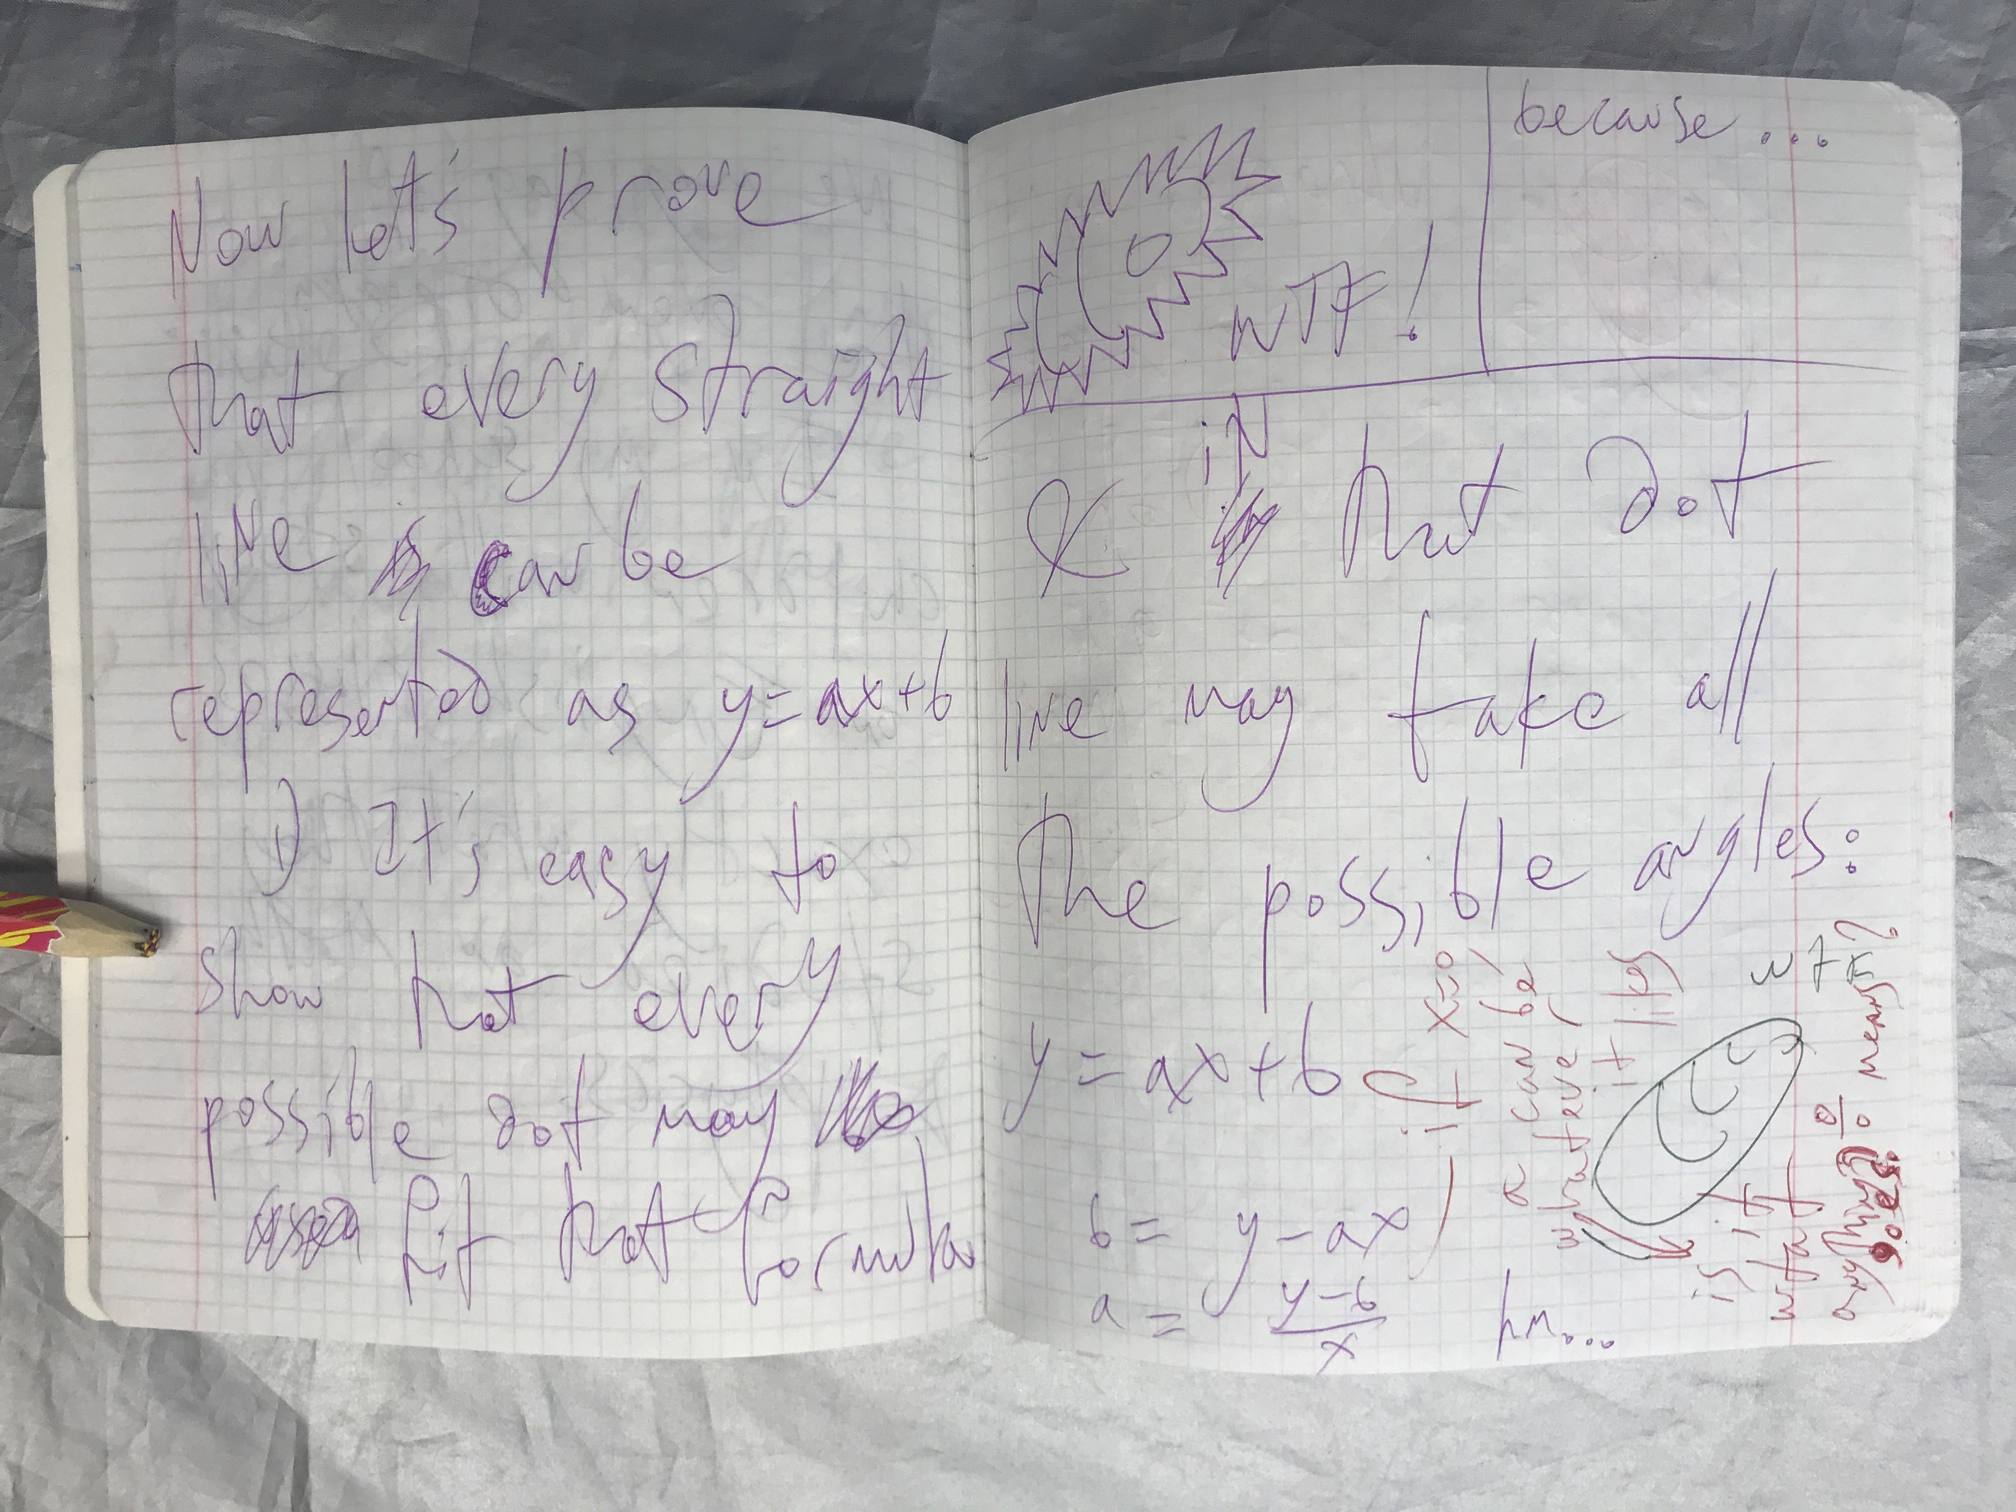 Now let's prove
that every straight
line can be
represented as y=ax+b
1) It's easy to
show that every
possible dot may
fit that formula
WTF!
because...
& in that dot
line may take all
the possible angles:
y = ax+b
b = y-ax
a = y-b/x
hm...
if x=0
a can be
whatever
it likes
WTF
is it
what 0/0 means?
anything
goes.